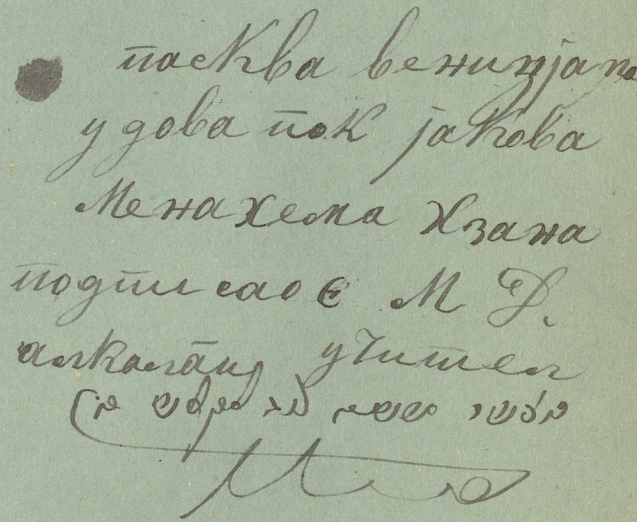 пасква венизјана
удова пок јакова
менахема хзана
подписао є М Д.
алкалаиј учител